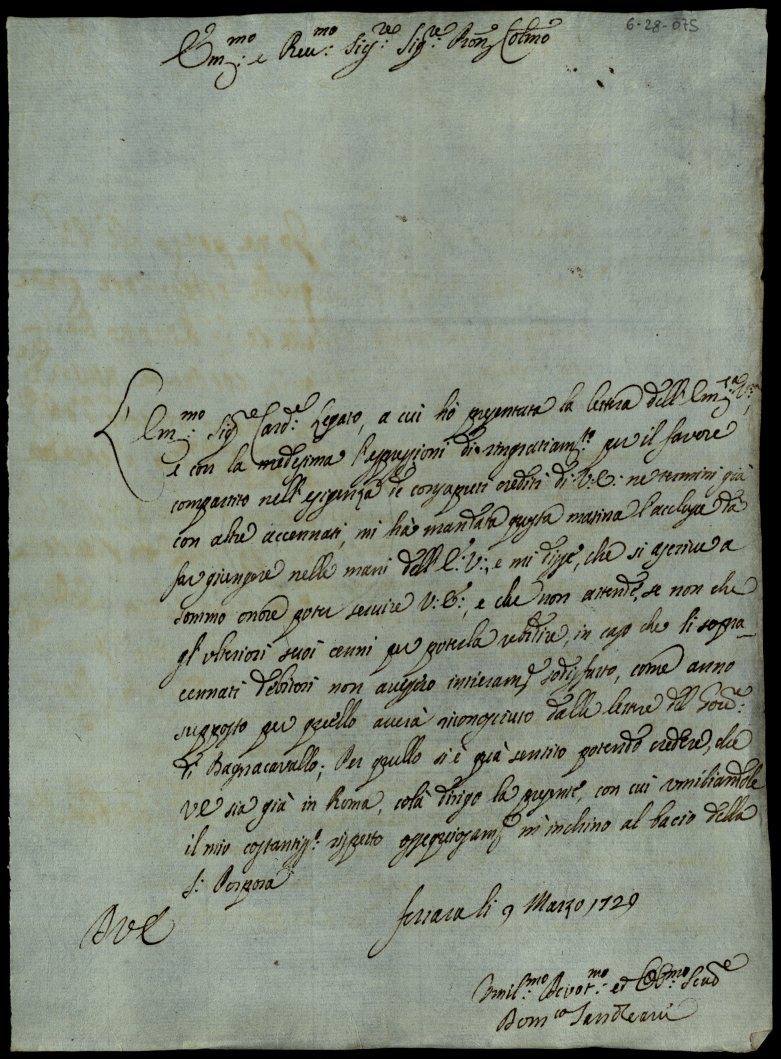 6-28-075
Em:mo e Reu:mo Sig:re Sig:re Pron Colmo
L'Em:mo Sig:re Card:e Legato, a cui hò presentata la lettera dell'Em:za V:ra,
e con la medesima l'espressioni di ringratiam:to per il favore
compartito nell'esigenza de consaputi crediti di V:E: ne termini già
con altre accennati, mi hà mandata questa matina l'acclusa da
far giungere nelle mani dell'E:V:, e mi disse, che si ascrive a
sommo onore poter seruire V:E:, e che non attende, se non che
gl'ulteriori suoi cenni per poterla ubidire, in caso che li sopra
cennati debitori non auessero intieram:e sodisfatto, come anno
supposto per quello auerà riconosciuto dalle lettere del Gou:re
di Bagnacavallo; Per quello si è già sentito potendo credere, che
VE sia già in Roma, colà dirigo la presente, con cui umiliandole
il mio costantiss:o rispetto ossequiosam:e m'inchino al bacio della
S: Porpora
Ferrara li 9 Marzo 1729
DVE
Umil:mo Deuot:mo ed Obb:mo Seru:e
Dom:co